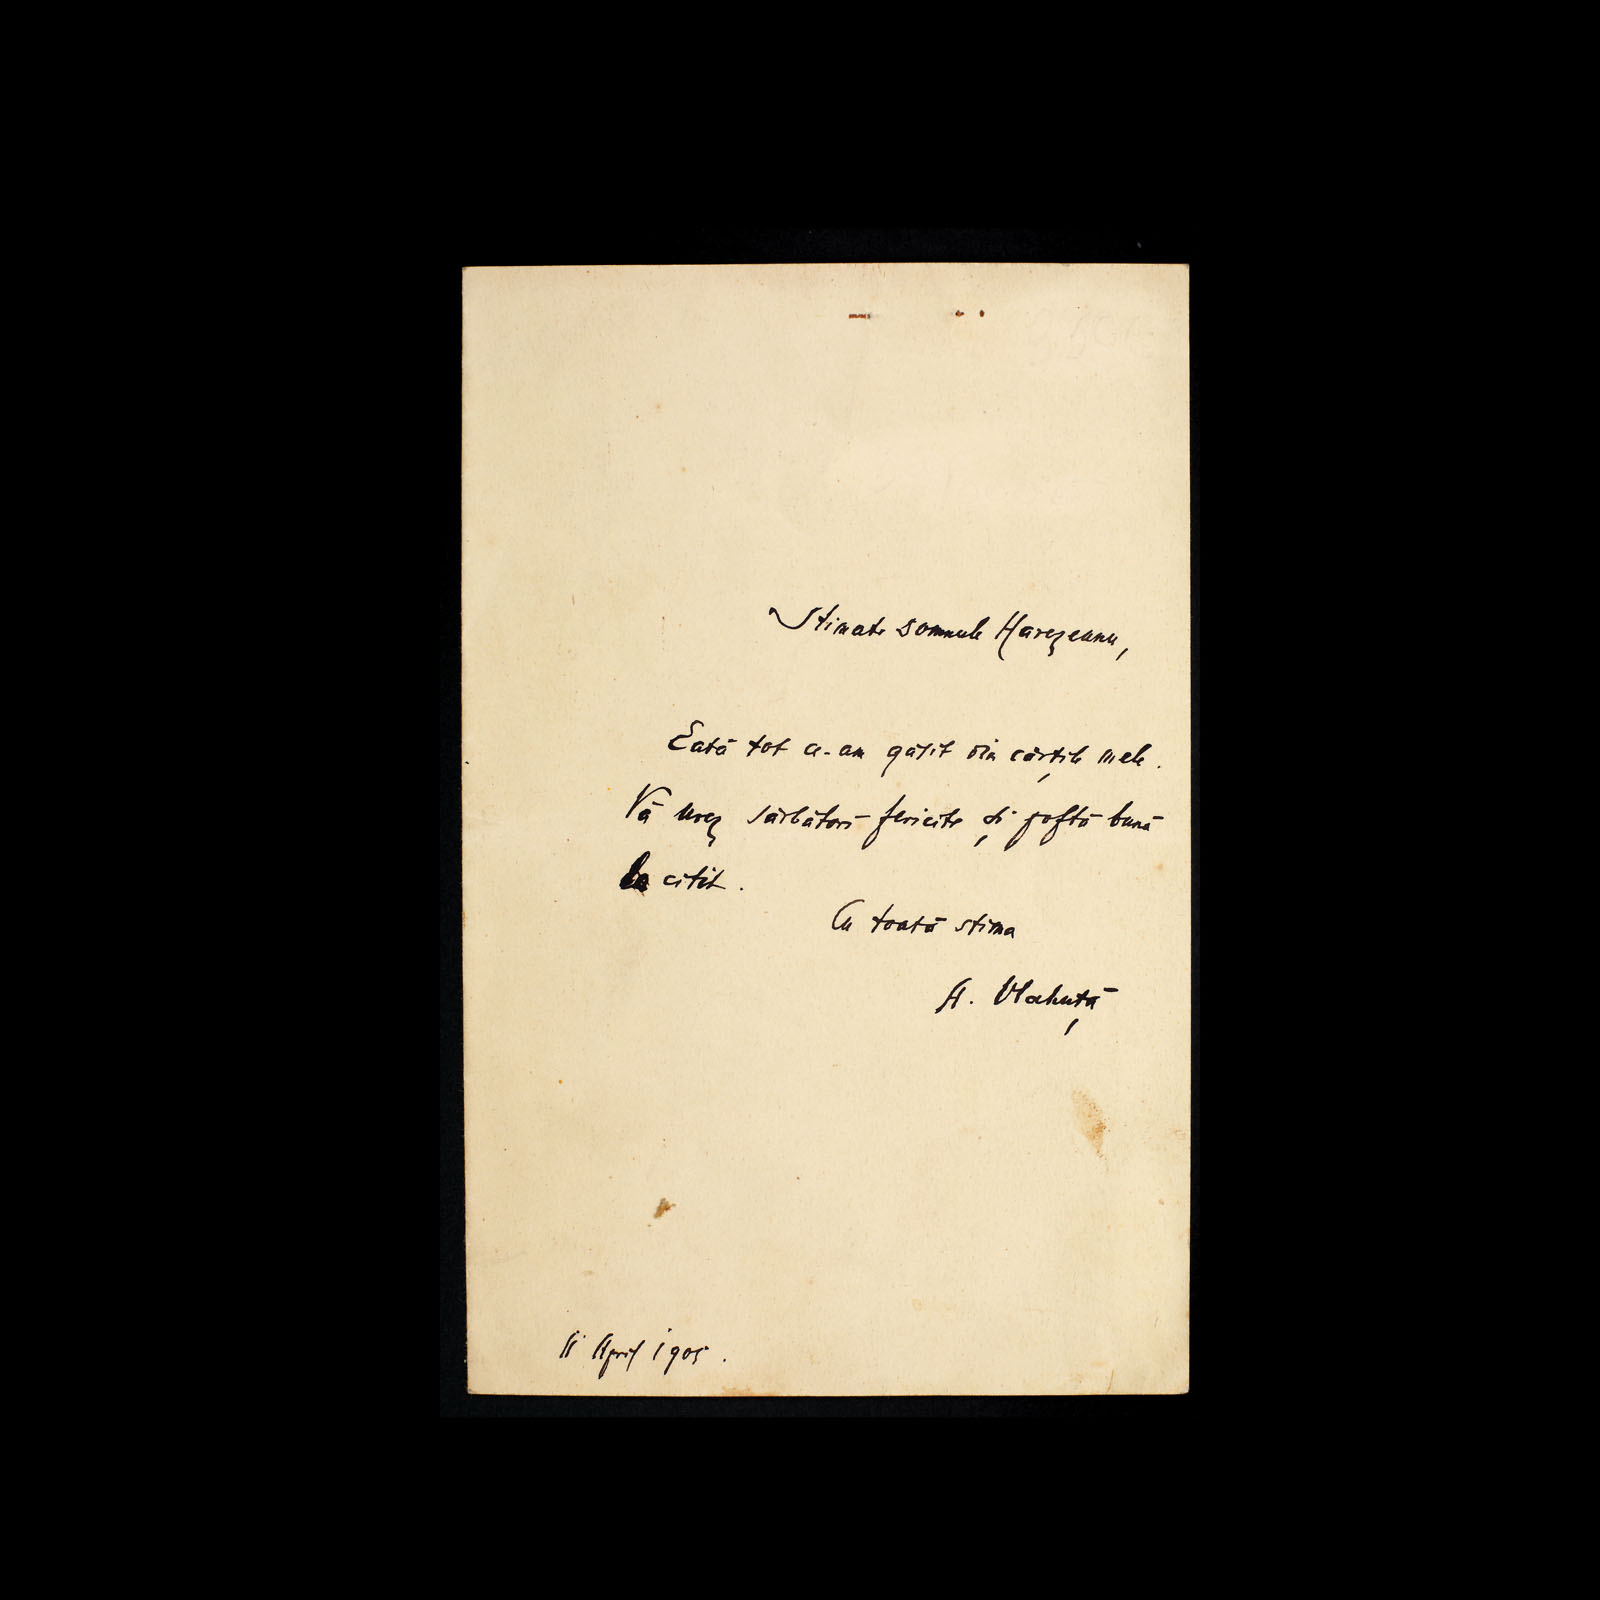 Stimate domnule Hareẓeanu,
Eată tot ce-am găsit din cărțile mele.
Vă urez sărbători fericite și poftă bună
la citit.
Cu toată stima
A. Vlahuță
11 April 1905.